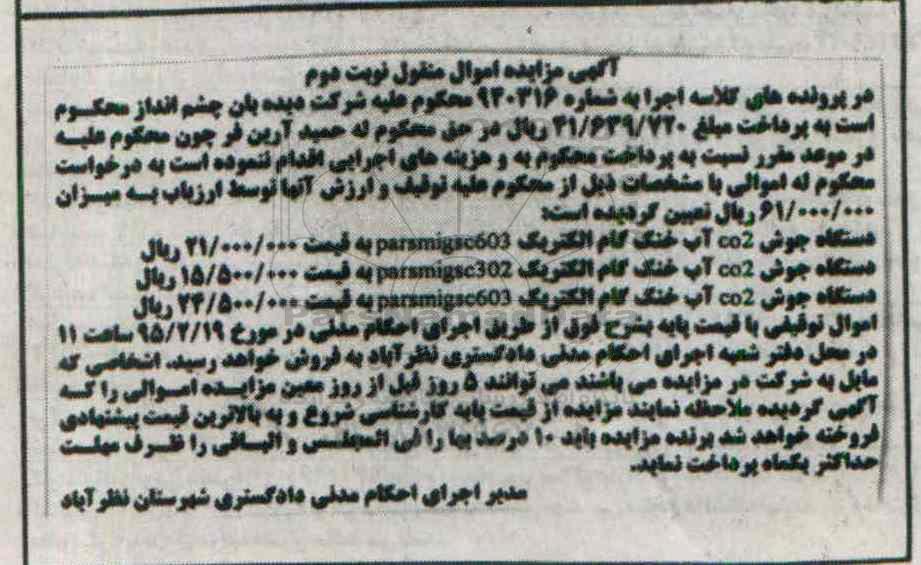 آگهی مزایده اموال منقول نوبت دوم
در پرونده های کلاسه اجرا به شماره ۹۴۰۳۱۶ محکوم علیه شرکت دیده بان چشم انداز محکوم
است به پرداخت مبلغ ۴۱/۶۳۹/۷۲۰ ریال در حق محکوم له حمید آرین فر چون محکوم علیه
در موعد مقرر نسبت به پرداخت محکوم به و هزینه های اجرایی اقدام ننموده است به درخواست
محکوم له اموالی با مشخصات ذیل از محکوم علیه توقیف و ارزش آنها توسط ارزیاب به میزان
۶۱/۰۰۰/۰۰۰ ریال تعیین گردیده است:
دستگاه جوش co2 آب خنک گام الکتریک parsmigsc603 به قیمت ۲۱/۰۰۰/۰۰۰ ریال
دستگاه جوش co2 آب خنک گام الکتریک parsmigsc302 به قیمت ۱۵/۵۰۰/۰۰۰ ریال
دستگاه جوش co2 آب خنک گام الکتریک parsmigsc603 به قیمت ۲۴/۵۰۰/۰۰۰ ریال
اموال توقیفی با قیمت پایه بشرح فوق از طریق اجرای احکام مدنی در مورخ ۹۵/۷/۱۹ ساعت ۱۱
در محل دفتر شعبه اجرای احکام مدنی دادگستری نظرآباد به فروش خواهد رسید. اشخاصی که
مایل به شرکت در مزایده می باشند می توانند ۵ روز قبل از روز معین مزایده اموالی را که
آگهی گردیده ملاحظه نمایند مزایده از قیمت پایه کارشناسی شروع و به بالاترین قیمت پیشنهادی
فروخته خواهد شد برنده مزایده باید ۱۰ درصد بها را فی المجلس و الباقی را ظرف مهلت
حداکثر یکماه پرداخت نماید.
مدیر اجرای احکام مدنی دادگستری شهرستان نظرآباد
ParsNamadData